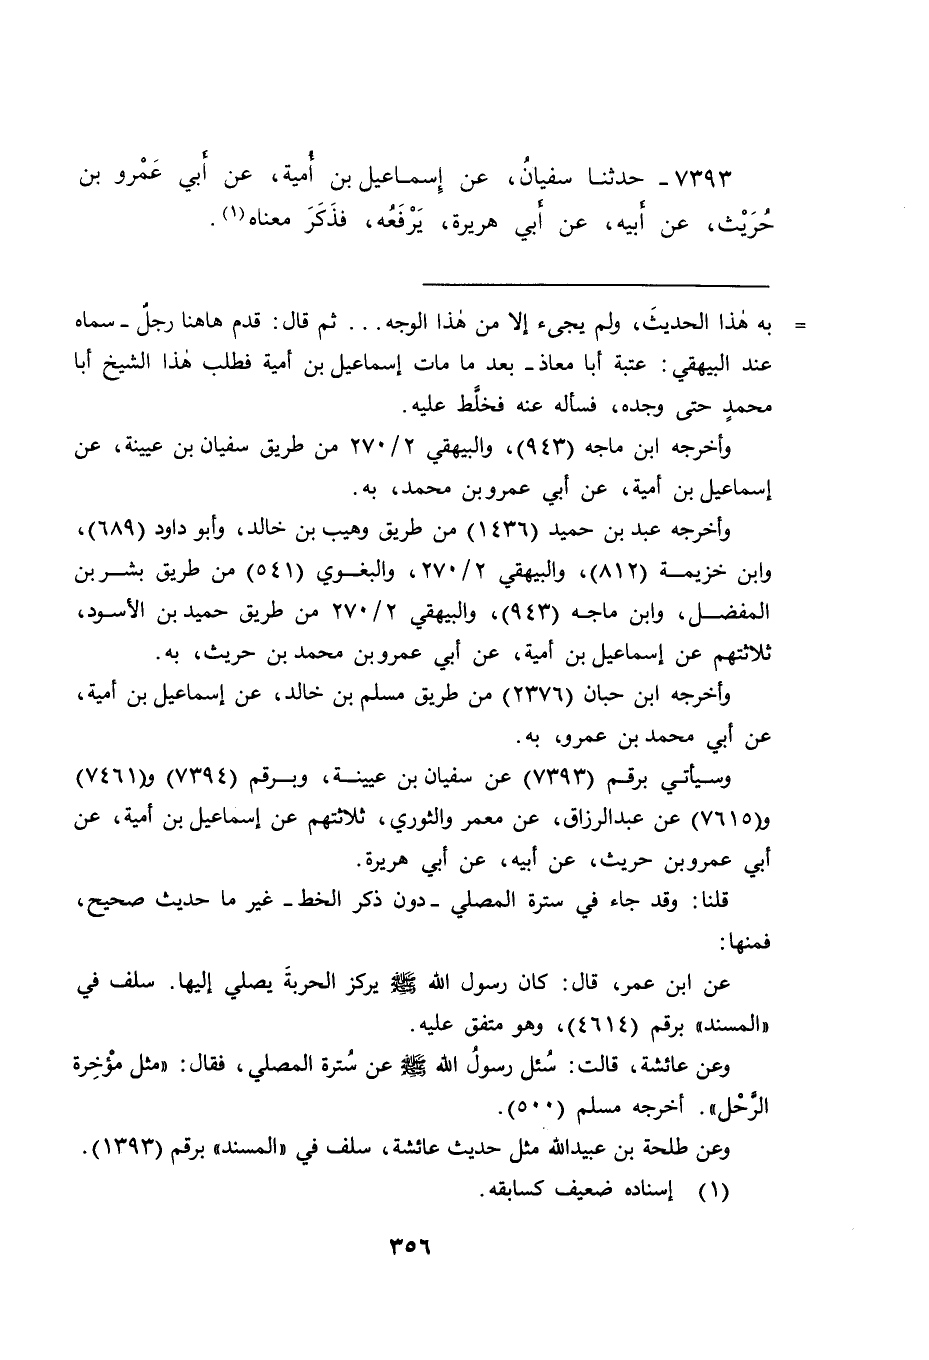 ٧٣٩٣ـ حدثنا سفيانُ، عن إِسماعيل بن أُمية، عن أَبي عَمْرو بن
حُرَيْث، عن أَبيه، عن أَبي هريرة، يَرْفَعُه، فذَكَرَ معناه(١).
= به هٰذا الحديثَ، ولم يجىء إلا من هٰذا الوجه... ثم قال: قدم هاهنا رجلٌ ـ سماه
عند البيهقي: عتبة أبا معاذ ـ بعد ما مات إسماعيل بن أمية فطلب هٰذا الشيخ أبا
محمدٍ حتى وجده، فسأله عنه فخلَّط عليه.
وأخرجه ابن ماجه (٩٤٣)، والبيهقي ٢/ ٢٧٠ من طريق سفيان بن عيينة، عن
إسماعيل بن أمية، عن أبي عمرو بن محمد، به.
وأخرجه عبد بن حميد (١٤٣٦) من طريق وهيب بن خالد، وأبو داود (٦٨٩)،
وابن خزيمة (٨١٢)، والبيهقي ٢/ ٢٧٠، والبغوي (٥٤١) من طريق بشر بن
المفضل، وابن ماجه (٩٤٣)، والبيهقي ٢/ ٢٧٠ من طريق حميد بن الأسود،
ثلاثتهم عن إسماعيل بن أمية، عن أبي عمرو بن محمد بن حريث، به.
وأخرجه ابن حبان (٢٣٧٦) من طريق مسلم بن خالد، عن إسماعيل بن أمية،
عن أبي محمد بن عمرو، به.
وسيأتي برقم (٧٣٩٣) عن سفيان بن عيينة، وبرقم (٧٣٩٤) و(٧٤٦١)
و(٧٦١٥) عن عبدالرزاق، عن معمر والثوري، ثلاثتهم عن إسماعيل بن أمية، عن
أبي عمرو بن حريث، عن أبيه، عن أبي هريرة.
قلنا: وقد جاء في سترة المصلي ـ دون ذكر الخط ـ غير ما حديث صحيح،
فمنها:
عن ابن عمر، قال: كان رسول الله ﷺ يركز الحربةَ يصلي إليها. سلف في
«المسند» برقم (٤٦١٤)، وهو متفق عليه.
وعن عائشة، قالت: سُئل رسولُ الله ﷺ عن سُترة المصلي، فقال: «مثل مؤْخِرة
الرَّحْل». أخرجه مسلم (٥٠٠).
وعن طلحة بن عبيدالله مثل حديث عائشة، سلف في «المسند» برقم (١٣٩٣).
(١) إسناده ضعيف كسابقه.
٣٥٦